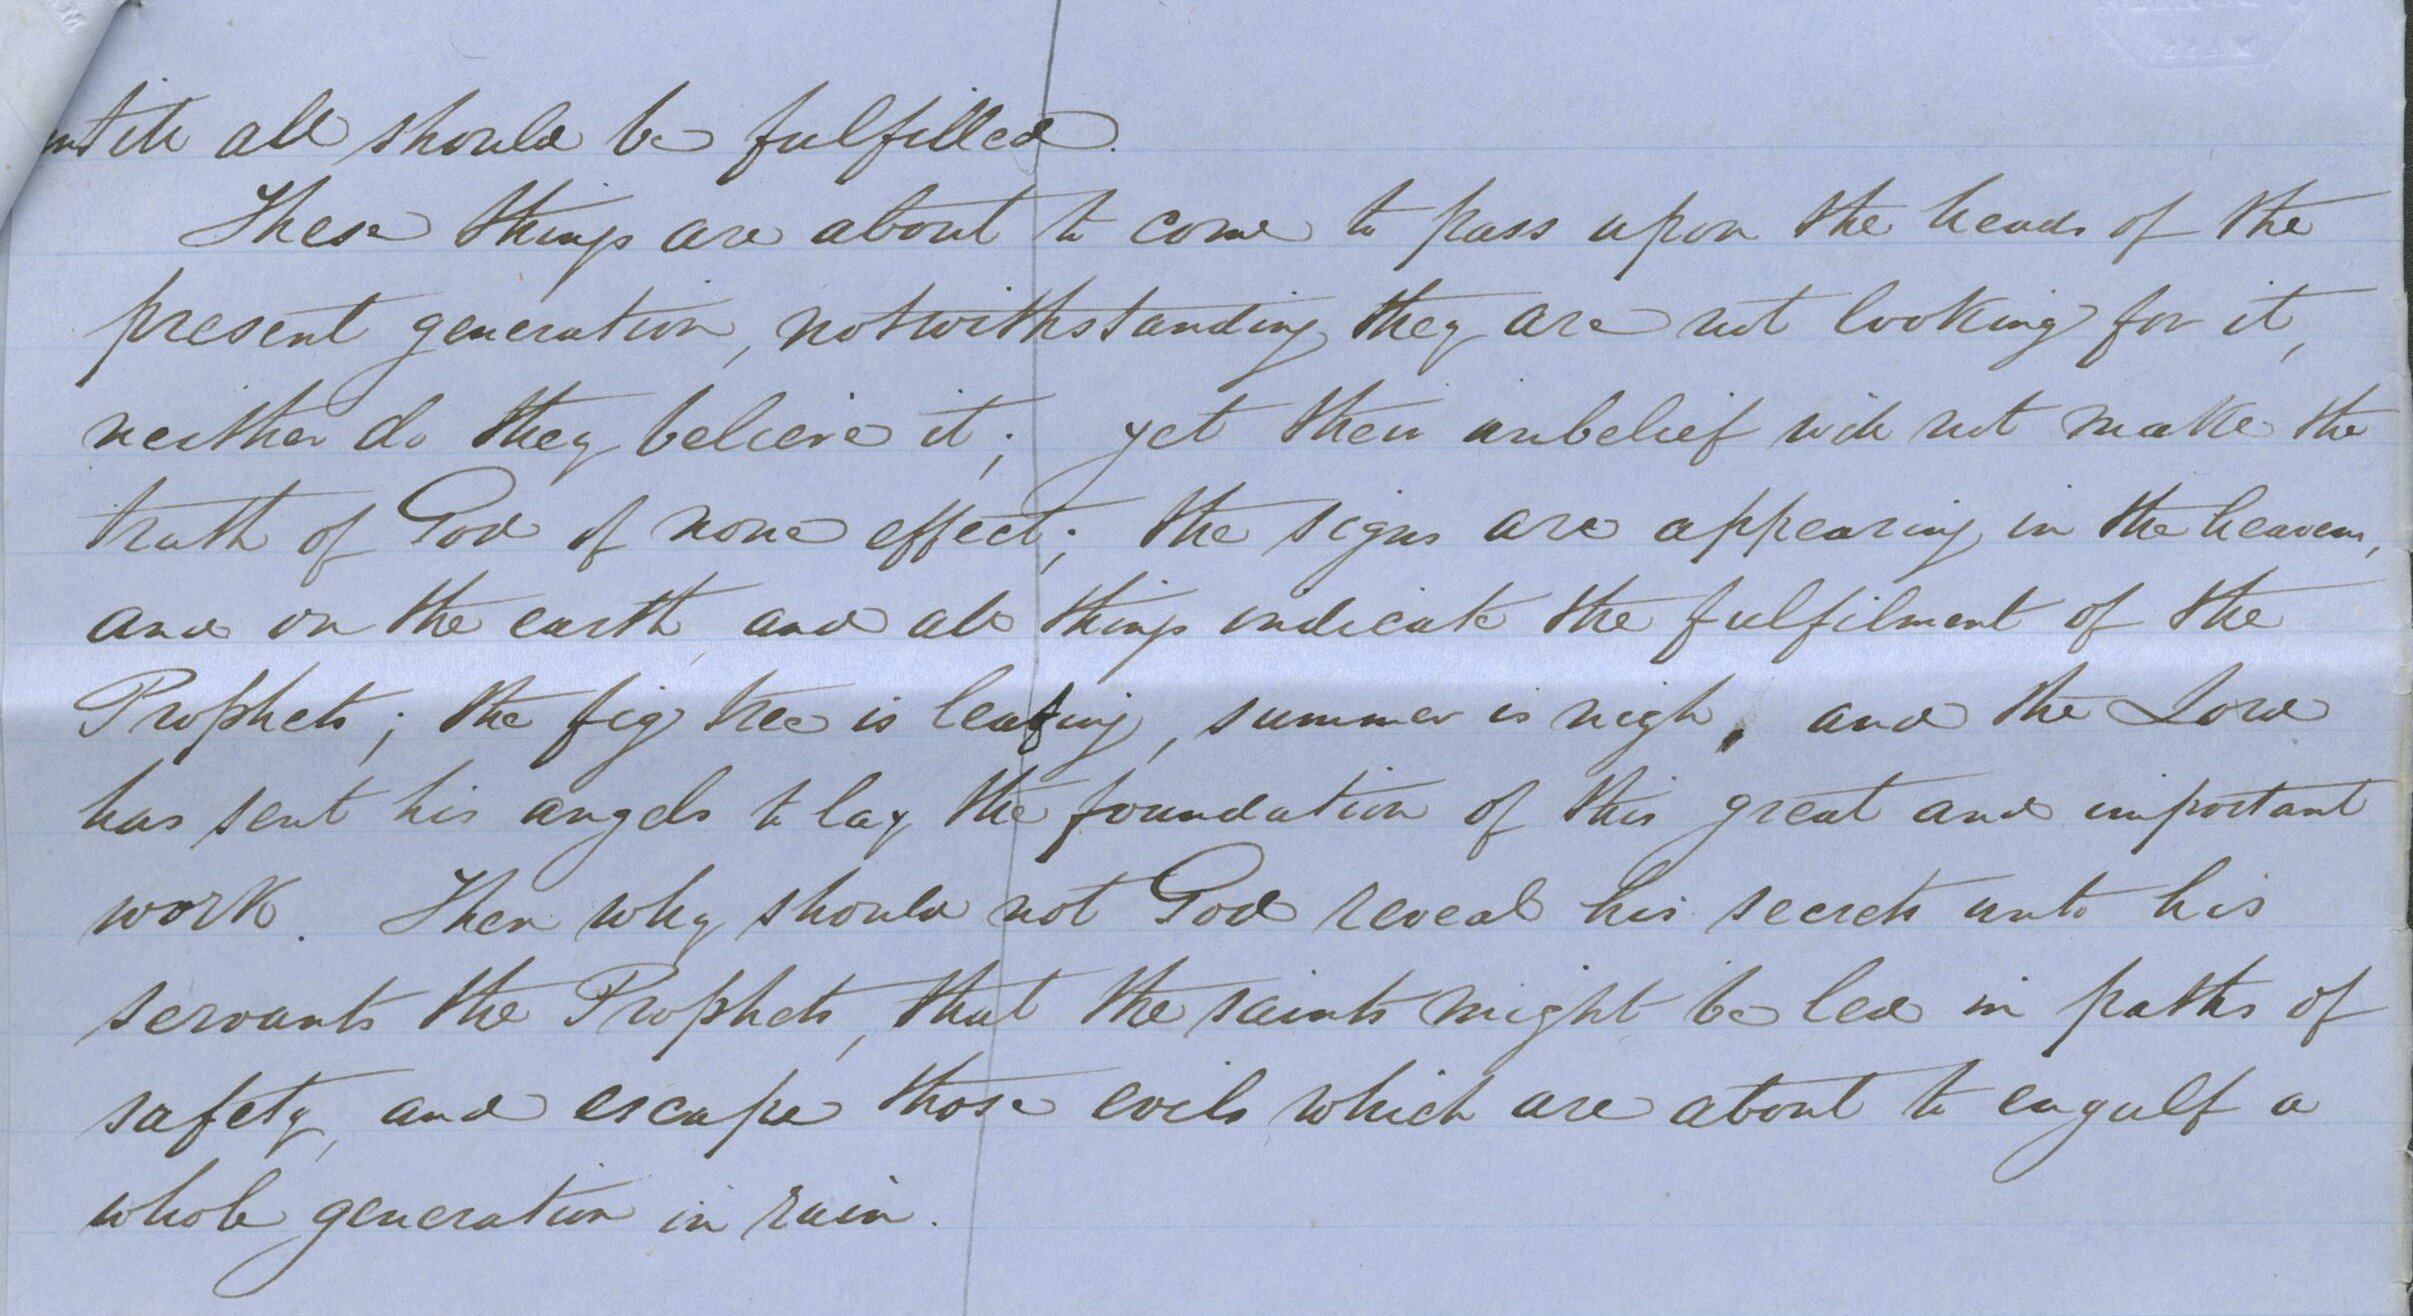 until all should be fulfilled.
These things are about to come to pass upon the heads of the
present generation, notwithstanding they are not looking for it,
neither do they believe it; yet their unbelief will not make the
truth of God of none effect; the signs are appearing in the heavens,
and on the earth, and all things indicate the fulfilment of the
Prophets; the fig tree is leafing, summer is nigh, and the Lord
has sent his angels to lay the foundation of this great and important
work. Then why should not God reveal his secrets unto his
servants the Prophets, that the saints might be led in paths of
safety, and escape those evils which are about to engulf a
whole generation in ruin.